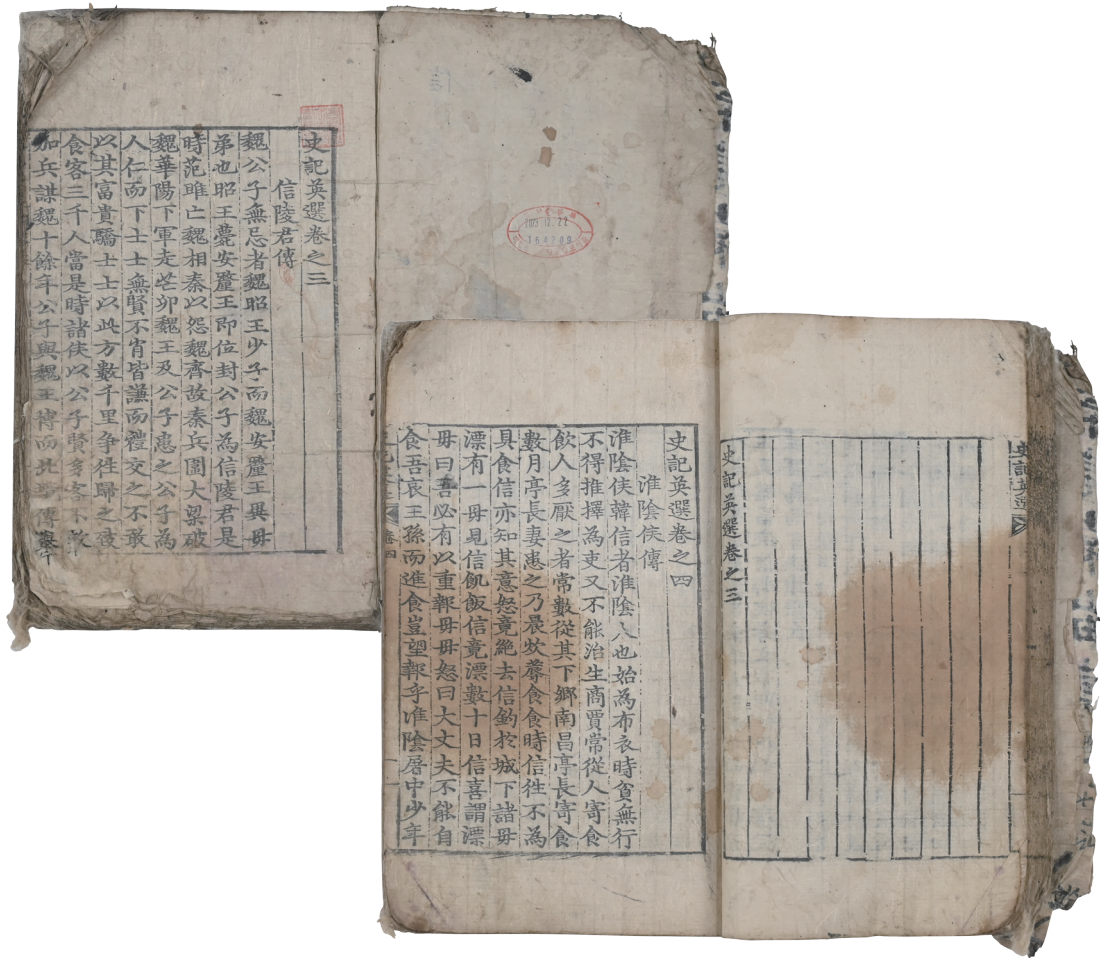 史記英選卷之三
信陵君傳
魏公子無忌者魏昭王少子而魏安釐王異母
弟也昭王薨安釐王即位封公子為信陵君是
時范雎亡魏相秦以怨魏齊故秦兵圍大梁破
魏華陽下軍走芒卯魏王及公子患之公子為
人仁而下士士無賢不肖皆謙而禮交之不敢
以其富貴驕士士以此方數千里爭徃歸之致
食客三千人當是時諸侯以公子賢多客不敢
加兵謀魏十餘年公子與魏王博而北境傳舉
164209
史記英選
史記英選卷之三
史記英選卷之四
淮陰侯傳
淮陰侯韓信者淮陰人也始為布衣時貧無行
不得推擇為吏又不能治生商賈常從人寄食
飲人多厭之者常數從其下鄉南昌亭長寄食
數月亭長妻患之乃晨炊蓐食食時信徃不為
具食信亦知其意怒竟絶去信釣於城下諸母
漂有一母見信飢飯信竟漂數十日信喜謂漂
母曰吾必有以重報母母怒曰大丈夫不能自
食吾哀王孫而進食豈望報乎淮陰屠中少年
卷四